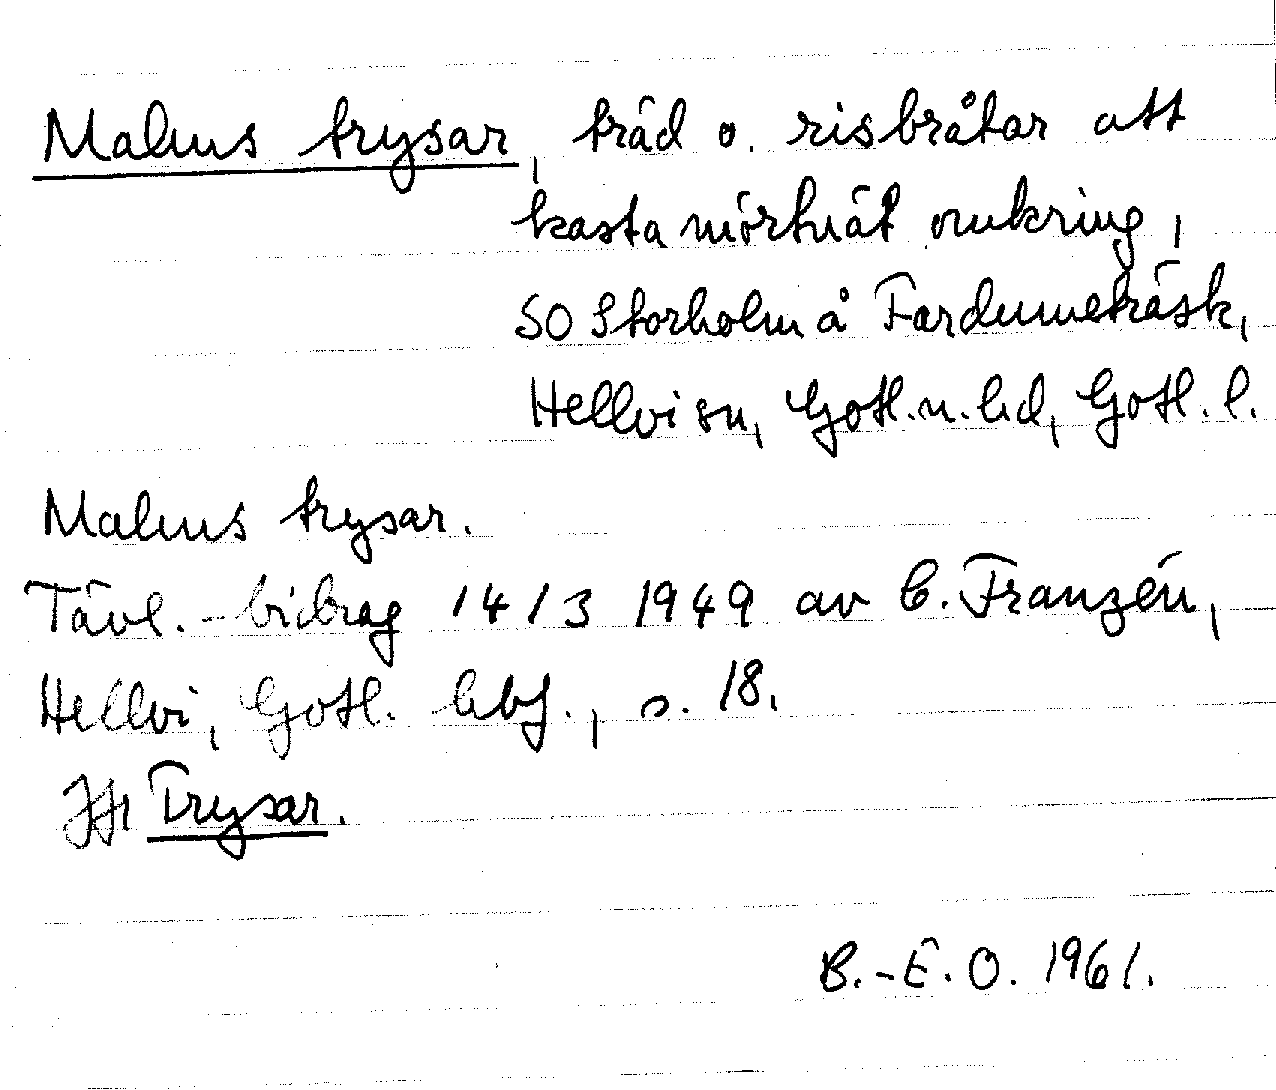 Malms trysar, träd o. risbråtar att
kasta mörtnät omkring,
SO Storholm å Fardumeträsk,
Hellvi sn, Gotl. n. hd, Gotl. l.
Malms trysar.
Tävl.-bidrag 14/3 1949 av C. Franzén,
Hellvi, Gotl. hbf., s. 18.
Jfr Trysar.
B.-E. O. 1961.